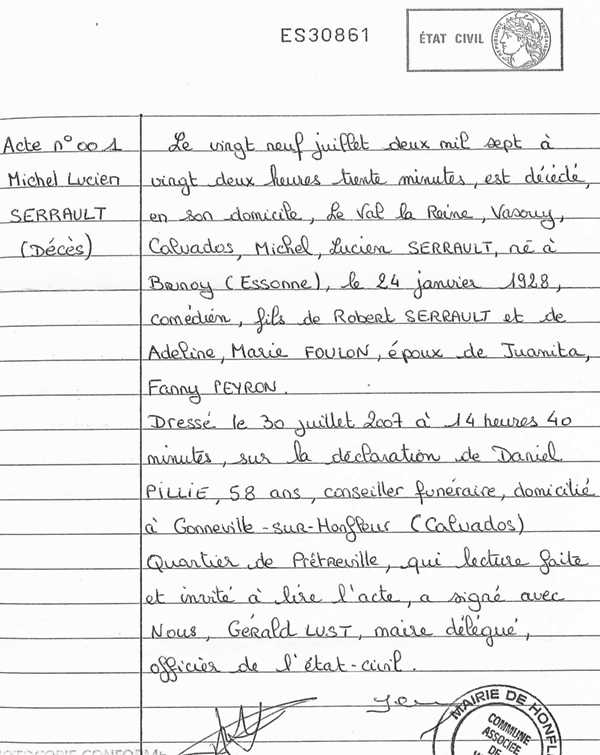 ES30861
ÉTAT CIVIL
RÉPUBLIQUE FRANÇAISE
Acte n° 001
Michel Lucien
SERRAULT
(Décès)
Le vingt neuf juillet deux mil sept à
vingt deux heures trente minutes, est décédé,
en son domicile, Le Val la Reine, Vasouy,
Calvados, Michel, Lucien SERRAULT, né à
Brunoy (Essonne), le 24 janvier 1928,
comédien, fils de Robert SERRAULT et de
Adeline, Marie FOULON, époux de Juanita,
Fanny PEYRON.
Dressé le 30 juillet 2007 à 14 heures 40
minutes, sur la déclaration de Daniel
PILLIE, 58 ans, conseiller funéraire, domicilié
à Gonneville-sur-Honfleur (Calvados)
Quartier de Prêtreville, qui lecture faite
et invité à lire l'acte, a signé avec
Nous, Gérald LUST, maire délégué,
officier de l'état-civil.
MAIRIE DE HONFL
COMMUNE
ASSOCIÉE
DE